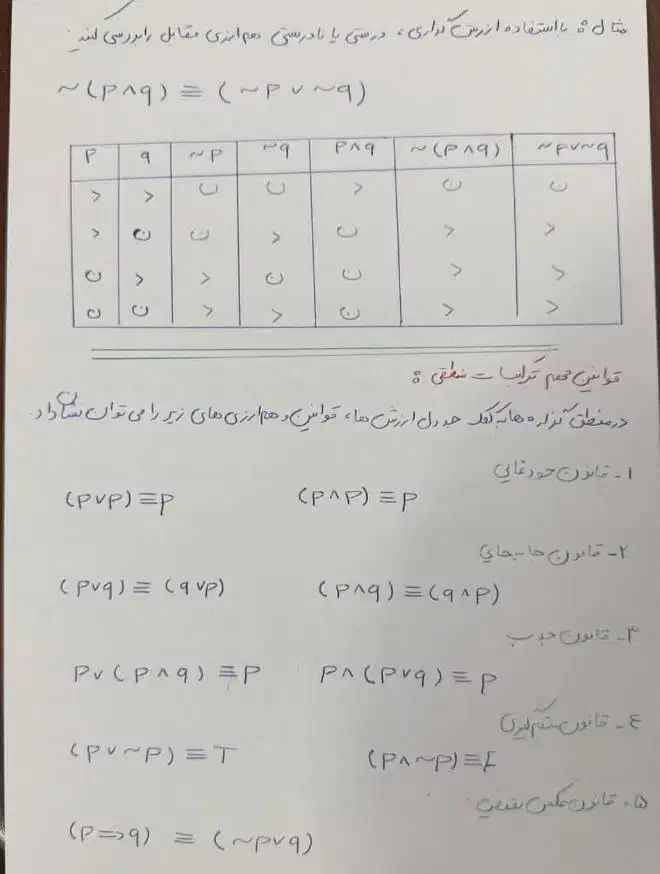 مثال: با استفاده از ارزش گذاری، درستی یا نادرستی هم ارزی مقابل را بررسی کنید:
~(p∧q) ≡ (~p∨~q)
p q ~p ~q p∧q ~(p∧q) ~p∨~q
د د ن ن د ن ن
د ن ن د ن د د
ن د د ن ن د د
ن ن د د ن د د
قوانین مهم ترکیبات منطقی:
در منطق گزاره ها به کمک جدول ارزش ها، قوانین و هم ارزی های زیر را می توان نشان داد.
۱- قانون خودتوانی
(p∨p) ≡p (p∧p) ≡p
۲- قانون جابه جایی
(p∨q) ≡ (q∨p) (p∧q) ≡(q∧p)
۳- قانون جذب
p∨(p∧q) ≡p p∧(p∨q) ≡ p
٤- قانون متمم گیری
(p∨~p) ≡T (p∧~p)≡F
۵- قانون عکس نقیض
(p=>q) ≡ (~p∨q)